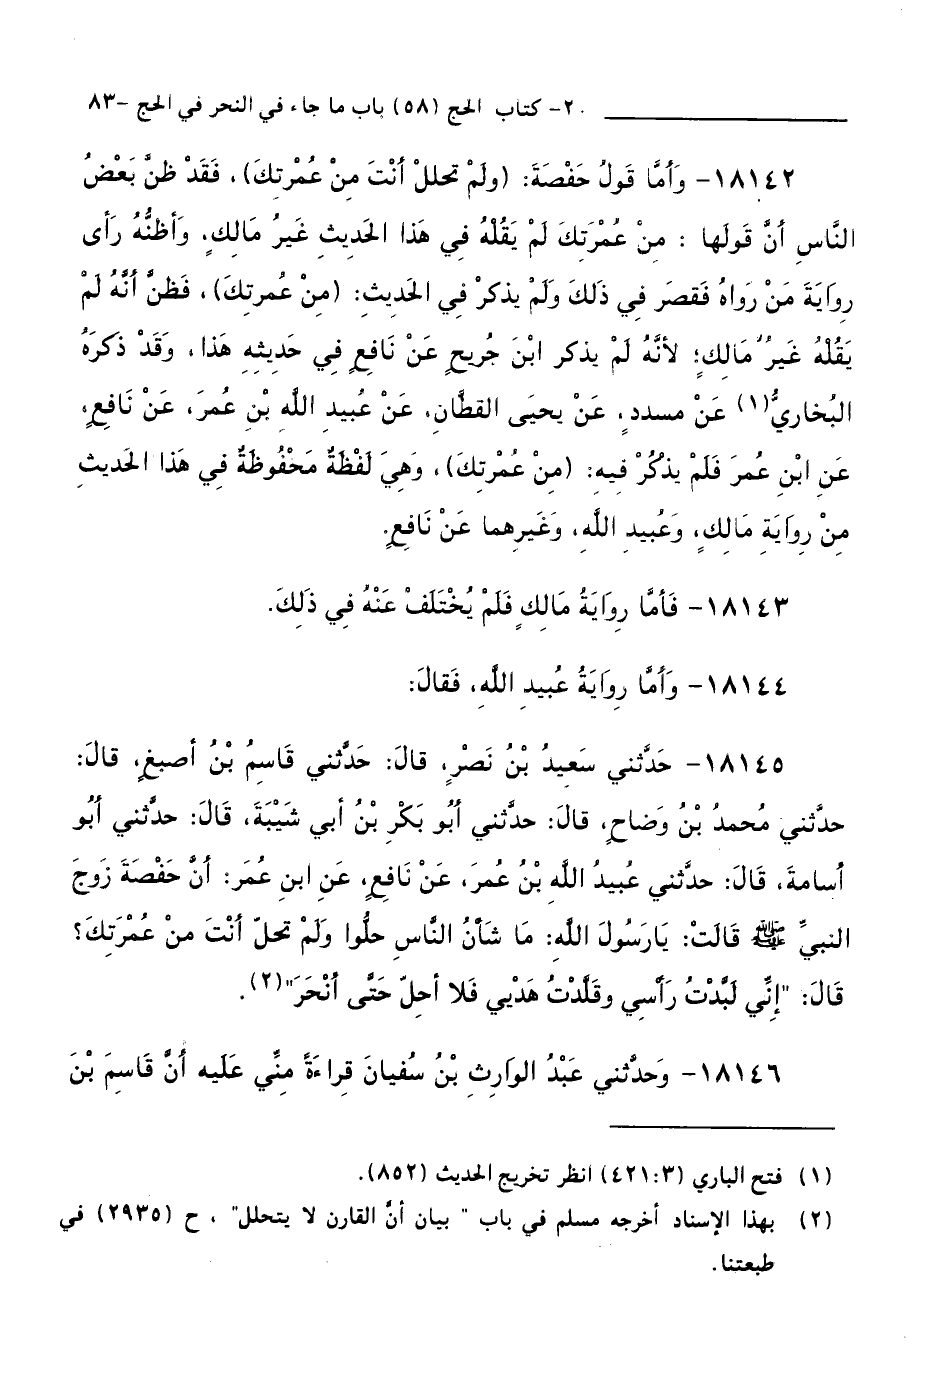 ٢٠- كتاب الحج (٥٨) باب ما جاء في النحر في الحج -٨٣
١٨١٤٢- وَأمَّا قَولُ حَفْصَةَ: (ولَمْ تحللْ أنْتَ مِنْ عُمْرتِكَ)، فَقَدْ ظنَّ بَعْضُ
النَّاسِ أنَّ قَولَها : مِنْ عُمْرَتِكَ لَمْ يَقُلْهُ في هَذا الحَديثِ غَيرُ مَالكٍ. وَأظنُّهُ رَأى
روايَةَ مَنْ رَواهُ فَقصَرَ في ذَلكَ وَلَمْ يذكرْ في الحَديثِ: (مِنْ عُمرتِكَ)، فَظنَّ أنَّهُ لَمْ
يَقُلْهُ غَيرُ مَالكٍ؛ لأنَّهُ لَمْ يذكر ابْنَ جُريحٍ عَنْ نَافعٍ في حَديثِهِ هَذا، وَقَدْ ذكرَهُ
البُخاريُّ(١) عَنْ مسددٍ، عَنْ يحيَى القطَّانِ، عَنْ عُبيدِ اللَّهِ بْنِ عُمرَ، عَنْ نَافعٍ،
عَنِ ابْنِ عُمرَ فَلَمْ يذكُرْ فيهِ: (مِنْ عُمْرتِكَ)، وَهيَ لَفْظةٌ مَحْفُوظةٌ في هَذا الحَديثِ
مِنْ رِوايَةِ مَالكٍ، وَعُبيدِ اللَّهِ، وَغَيرِهما عَنْ نَافعٍ.
١٨١٤٣- فَأمَّا رِوايَةُ مَالكٍ فَلَمْ يُخْتَلَفْ عَنْهُ فِي ذَلِكَ.
١٨١٤٤- وَأمَّا روَايَةُ عُبيدِ اللَّهِ، فَقالَ:
١٨١٤٥- حَدَّثني سَعيدُ بْنُ نَصْرٍ، قالَ: حَدَّثني قَاسِمُ بْنُ أصبغٍ، قالَ:
حدَّثني مُحمدُ بْنُ وَضاحٍ، قالَ: حدَّثني أبُو بَكْرِ بْنُ أبي شَيْبَةَ، قَالَ: حدَّثني أبُو
أسامةَ، قَالَ: حدَّثني عُبيدُ اللَّه بْنُ عُمرَ، عَنْ نَافعٍ، عَنِ ابنِ عُمَرَ: أنَّ حَفْصَةَ زَوجَ
النبيِّ ﷺ قَالَتْ: يَارَسُولَ اللَّهِ: مَا شَأنُ النَّاسِ حلُّوا وَلَمْ تحلّ أنْتَ مِنْ عُمْرَتِكَ؟
قَالَ: "إنِّي لَبَّدْتُ رَأسِي وقلَّدْتُ هَدْيي فَلا أحِلّ حَتَّى أنْحَرَ"(٢).
١٨١٤٦- وَحدَّثني عَبْدُ الوَارِثِ بْنُ سُفيانَ قراءَةً مِنِّي عَلَيه أنَّ قَاسِمَ بْنَ
(١) فتح الباري (٤٢١:٣) انظر تخريج الحديث (٨٥٢).
(٢) بهذا الإسناد أخرجه مسلم في باب " بيان أنَّ القارن لا يتحلل" ، ح (٢٩٣٥) في
طبعتنا.